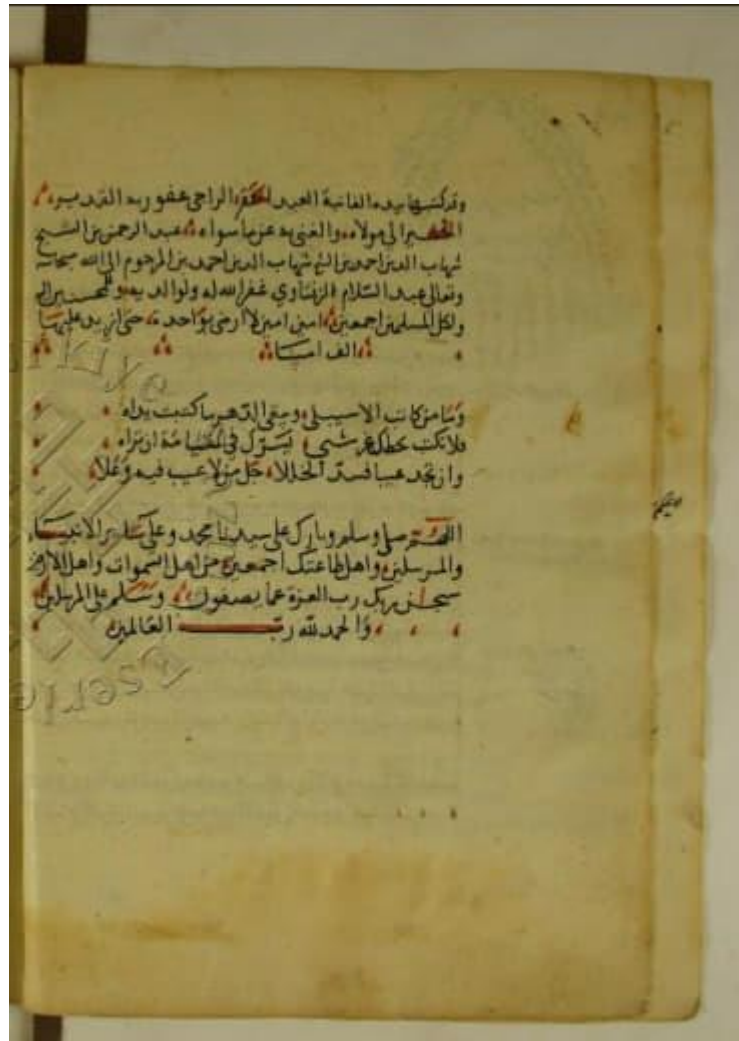 وقد كتبها بيده الفانية العبد الفقير الراجي عفو ربه القدير
الحقير الى مولاه والغنى به عن ما سواه عبد الرحمن بن الشيخ
شهاب الدين احمد بن الشيخ شهاب الدين احمد بن المرحوم الى الله سبحانه
وتعالى عبد السلام غفر الله له ولوالديه
ولكل المسلمين اجمعين امين امين لا ارضى بواحدة حتى ازيد عليها
الف امينا
وما من كاتب الا سيبلى ويبقى الدهر ما كتبت يداه
فلا تكتب بخطك غير شي يسرك في القيامة ان تراه
وان تجد عيبا فسد الخللا جل من لا عيب فيه وعلا
اللهم صل وسلم وبارك على سيدنا محمد وعلى سائر الانبياء
والمرسلين واهل طاعتك اجمعين من اهل السموات واهل الارض
سبحان ربك رب العزة عما يصفون وسلم على المرسلين
والحمد لله رب العالمين